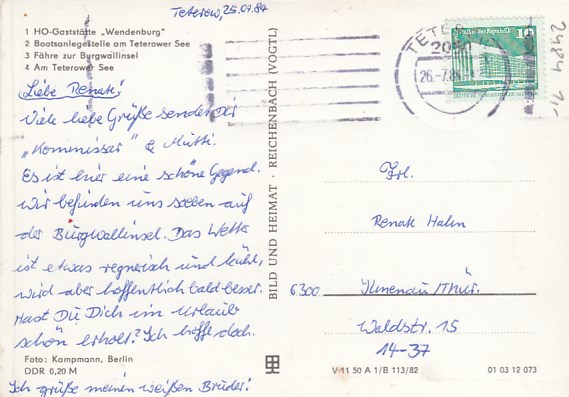 Teterow, 25.07.84
1 HO-Gaststätte „Wendenburg"
2 Bootsanlegestelle am Teterower See
3 Fähre zur Burgwallinsel
4 Am Teterower See
Liebe Renate!
Viele liebe Grüße senden der
„Kommissar" & Mutti.
Es ist hier eine schöne Gegend.
Wir befinden uns soeben auf
der Burgwallinsel. Das Wetter
ist etwas regnerisch und kühl,
wird aber hoffentlich bald besser.
Hast Du Dich im Urlaub
schön erholt? Ich hoffe doch.
Foto: Kampmann, Berlin
DDR 0,20 M
Ich grüße meinen weißen Bruder!
BILD UND HEIMAT · REICHENBACH (VOGTL)
TETEROW
2050
26.-7.84
Palast der Republik
10
2484 1,-
Frl.
Renate Hahn
6300 Ilmenau/Thür.
Waldstr. 15
14-37
V 11 50 A 1/B 113/82
01 03 12 073